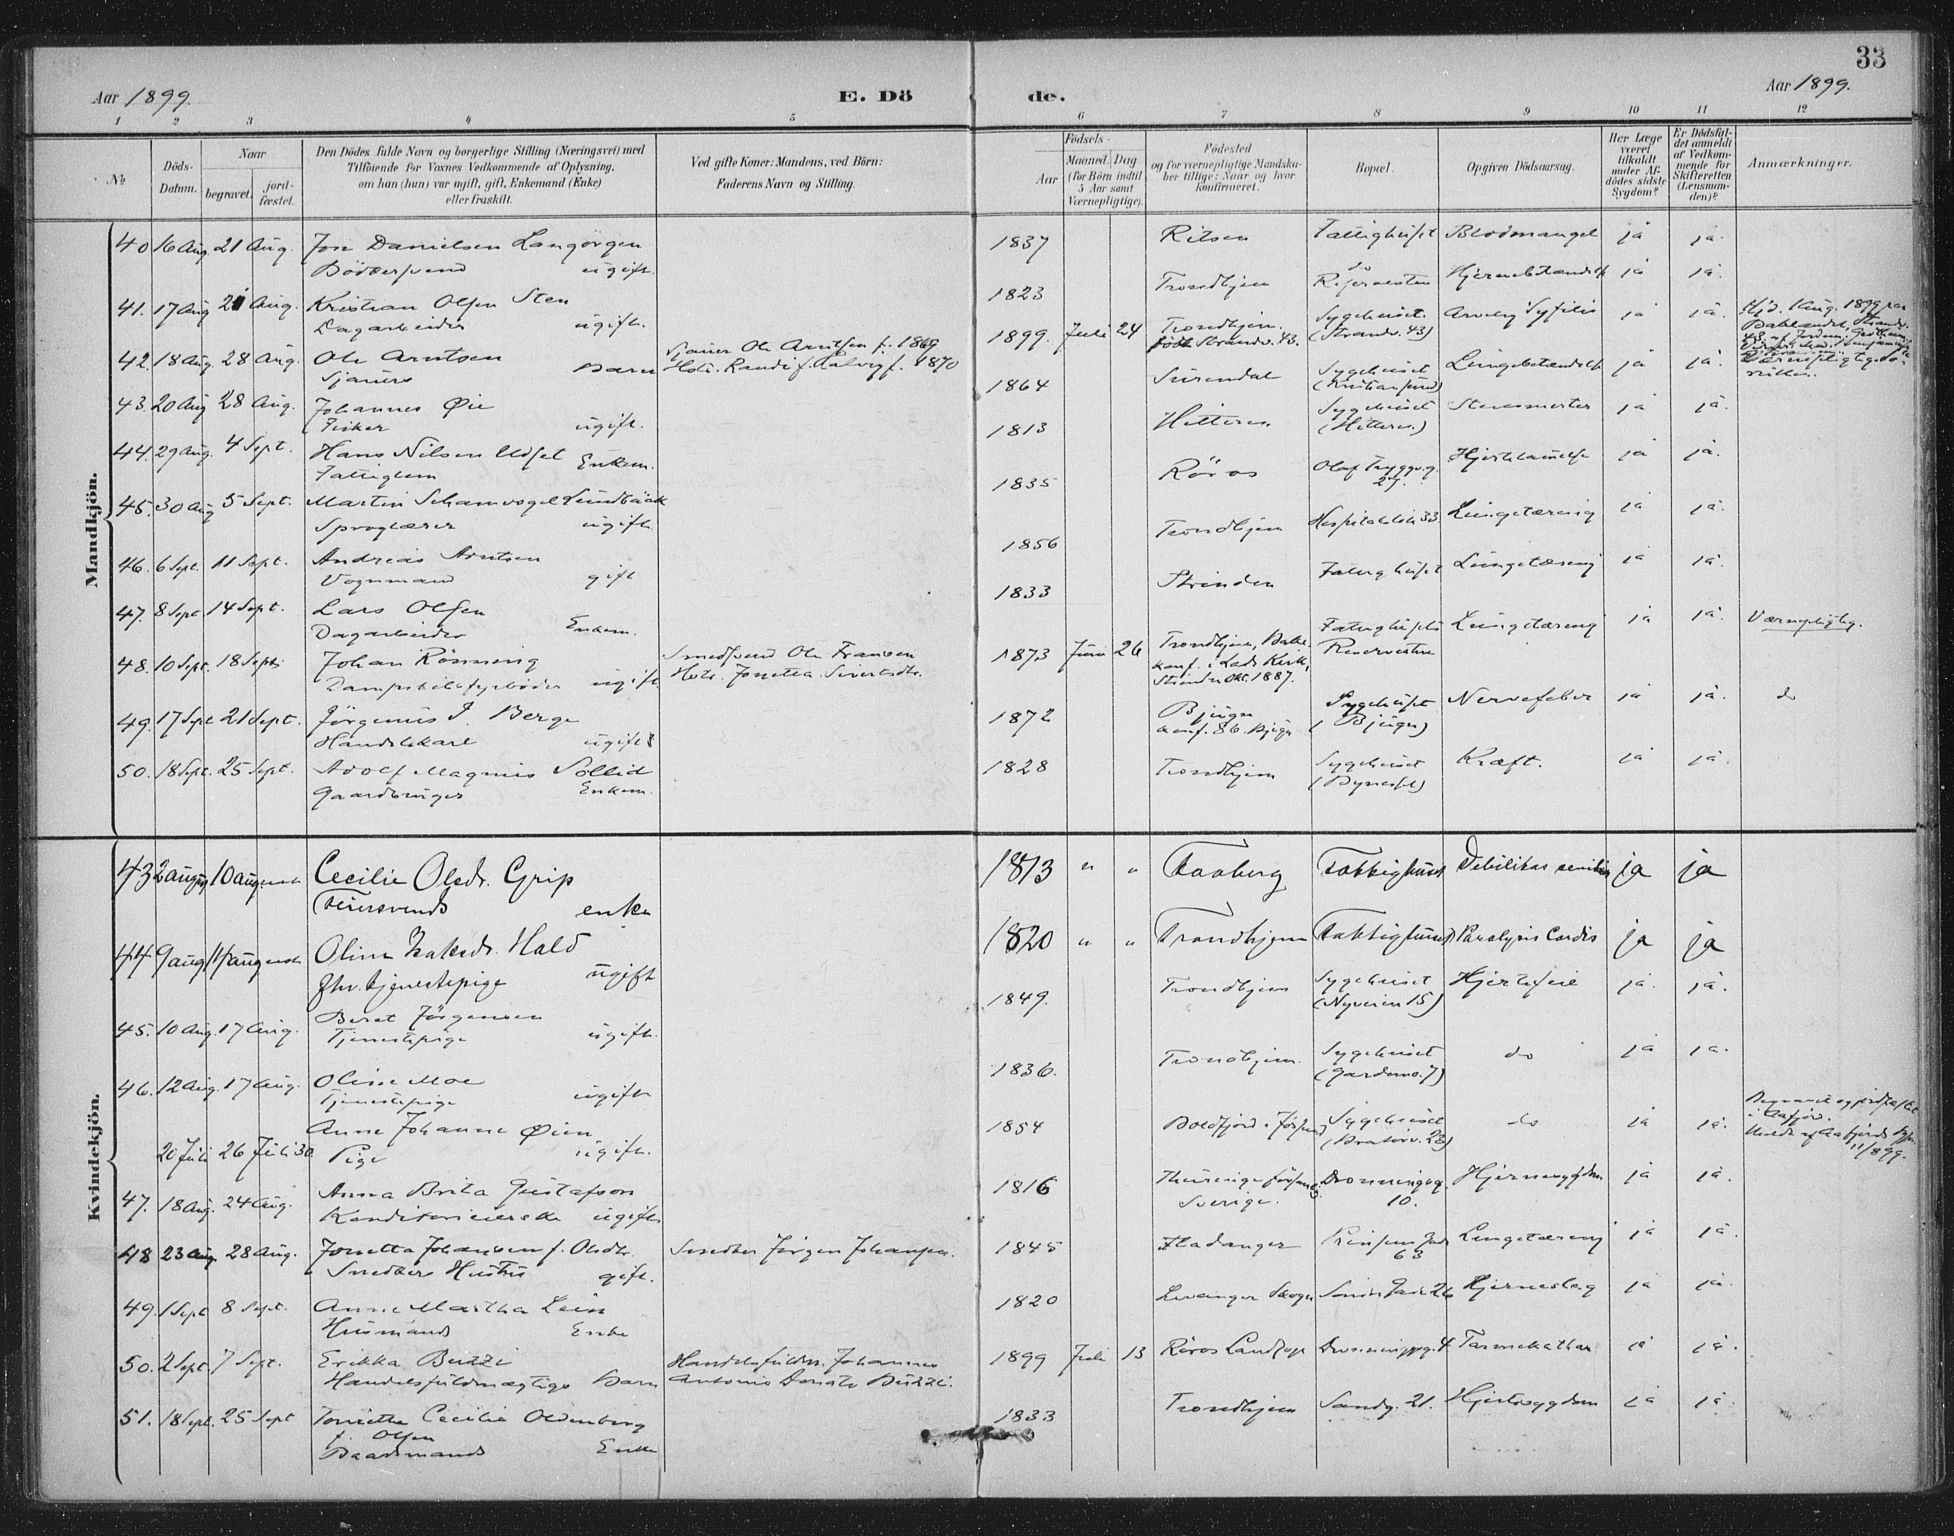 33
Aar 1899. E. Dö de. Aar 1899.
1 2 3 4 5 6 7 8 9 10 11 12
No
Döds-Datum.
Naar
begravet.
jord-fæstet.
Den Dödes fulde Navn og borgerlige Stilling (Næringsvei) med
Tilföiende for Voxnes Vedkommende af Oplysning,
om han (hun) var ugift, gift, Enkemand (Enke)
eller fraskilt.
Ved gifte Koner: Mandens, ved Börn:
Faderens Navn og Stilling.
Födsels-
Aar
Maaned. Dag
(for Börn indtil
5 Aar samt
Værnepligtige).
Födested
og for værnepligtige Mandska-
ber tillige: Naar og hvor
konfirmeret.
Bopæl.
Opgiven Dödsaarsag.
Har Læge
været
tilkaldt
under Af-
dödes sidste
Sygdom?
Er Dödsfal-
det anmeldt
af Vedkom-
mende for
Skifteretten
(Lensman-
den)?
Anmærkninger.
Mandkjön.
40 16 Aug 21 Aug. Jon Danielsen Langörgen 1837 Rissen Fattighuset Blodmangel ja ja.
Bödkersvend ugift.
41. 17 Aug 21 Aug. Kristian Olsen Sten 1823 Trondhjem do Hjernebetændelse ja ja.
Dagarbeider ugift.
42. 18 Aug 28 Aug. Ole Arntsen Barn Sjauer Ole Arntsen f. 1869 1899. Juli 24 Trondhjem. Sygehuset. Arvelig Syfilis ja ja.
Sjauers 1870 Strandv. 43. (Strandv. 43)
43. 20 Aug 28 Aug. Johannes Øie 1864 Surendal Sygehuset Lungebetændelse ja ja.
Fisker ugift. (Kristiansund)
44. 29 Aug. 4 Sept. Hans Nilsen Enkem. 1813 Hitteren Sygehuset ja ja.
Fattiglem (Hitteren)
45. 30 Aug 5 Sept. Martin Schamvogel Lundbäck 1835 Röros Olaf Tryggv.g. 27. Hjertelamelse ja ja.
Sproglærer ugift.
46. 6 Sept. 11 Sept. Andreas Arntsen 1856 Trondhjem 33 Lungetæring ja ja.
Vognmand gift
47. 8 Sept. 14 Sept. Lars Olsen 1833 Strinden Fattighuset Lungetæring ja ja.
Dagarbeider Enkem.
48. 10 Sept. 18 Sept. Johan Rönning Smedsvend Ole Fransen 1873 Juni 26 Trondhjem, Bakke Fattighusets Lungetæring ja ja. Værnepligtig.
Dampskibsfyrböder ugift konf. i Lade Kirke,
Strinden Okt. 1887.
49. 17 Sept 21 Sept. Jörginus J. Berge 1872 Bjugn Sygehuset Nervefeber ja ja. do
Handelskarl ugift konf. 86. Bjugn (Bjugn)
50. 18 Sept. 25 Sept. Adolf Magnus Sollid 1828 Trondhjem Sygehuset Kræft. ja ja.
Gaardbruger Enkem. (Bynesset)
Kvindekjön.
43 2 august 10 august Cecilie Olsdr. Grip 1813 " " Faaberg Fattighuset Debilitas senilis ja ja
Feiersvends enke
44 9 aug 14 august Oline Isaksdr. Hald 1820 " " Trondhjem Fattighuset Paralysis Cordis ja ja
fhv. tjenestepige ugift
45. 10 Aug. 17 Aug. Beret Jörgensen 1849. Trondhjem Sygehuset Hjertefeil ja. ja.
Tjenestepige ugift. (Nyveien 15)
46. 12 Aug. 17 Aug. Oline Moe 1836. Trondhjem. Sygehuset do ja ja.
Tjenestepige ugift (Gardemo. 7)
20 Juli 26 Juli 30 Anne Johanne Øien 1854 Sygehuset do ja ja. Begravet og jordfæstet
Pige ugift. i Aafjord.
11/8 99.
47. 18 Aug. 24 Aug. Anna Brita Gustafson 1816 Dronningeg. 10. Hjernesygdom ja ja.
Konditorieierske ugift Sverige.
48 23 Aug. 28 Aug. Jonetta Johansen f. Olsdtr. Smedker Jörgen Johansen. 1845 Fladanger Prinsens Gade 63 Lungetæring ja ja.
Hustru gift.
49. 1 Sept 8 Sept. Anne Martha Lein 1820 Levanger Skogn Söndre Gade 26 Hjerneslag ja ja.
Husmands Enke
50. 2 Sept. 7 Sept. Erikka Buzzi Handelsfuldm. Johannes 1899 Juli 13 Röros Landsogn Dronninggt. 4 Tarmekathar ja ja.
Handelsfuldmægtigs Barn Antonio Donato Buzzi.
51. 18 Sept. 25 Sept Tonette Cecilie Oldenborg 1833 Trondhjem Sandg. 21. Hjertesygdom ja ja.
f. Olsen
Baadsmands Enke